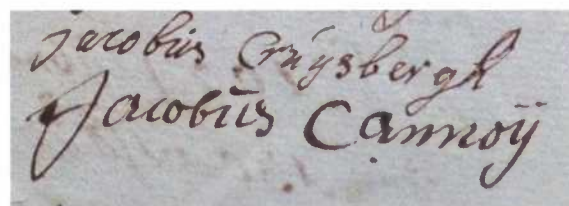 Jacobus Cruysbergh
Jacobus Cannoÿ